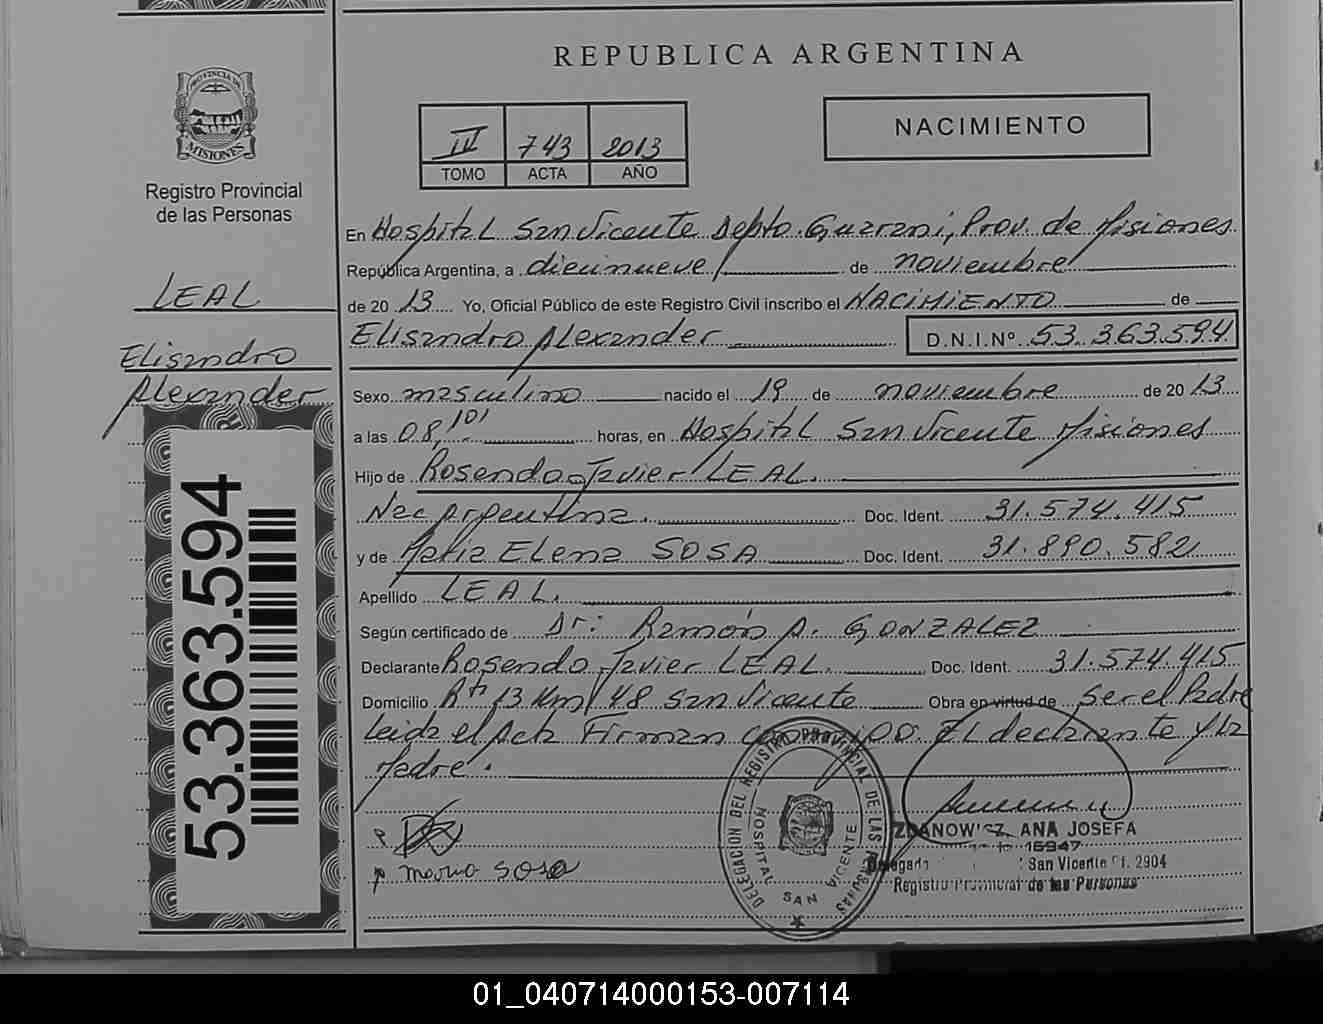 REPUBLICA ARGENTINA
PROVINCIA DE
MISIONES
Registro Provincial
de las Personas
IV 743 2013
TOMO ACTA AÑO
NACIMIENTO
LEAL
Elisandro
Alexander
53.363.594
En Hospital San Vicente Depto. Guarani, Prov. de Misiones
República Argentina, a diecinueve de noviembre
de 2013 Yo, Oficial Público de este Registro Civil inscribo el NACIMIENTO de
Elisandro Alexander D.N.I.Nº 53.363.594
Sexo masculino nacido el 19 de noviembre de 2013
a las 08,10' horas, en Hospital San Vicente Misiones
Hijo de Rosendo Javier LEAL.
Nac Argentina. Doc. Ident. 31.574.415
y de Maria Elena SOSA Doc. Ident. 31.890.582
Apellido LEAL.
Según certificado de Dr: Ramón A. GONZALEZ
Declarante Rosendo Javier LEAL. Doc. Ident. 31.574.415
Domicilio Rta 13 Km 48 San Vicente Obra en virtud de Ser el Padre
Leida el Acta Firman El declarante y La
Madre.
DELEGACION DEL REGISTRO PROVINCIAL DE LAS PERSONAS
HOSPITAL SAN VICENTE
ZDANOWICZ, ANA JOSEFA
16947
Delegada San Vicente 2904
Registro Provincial de las Personas
sosa
01_040714000153-007114